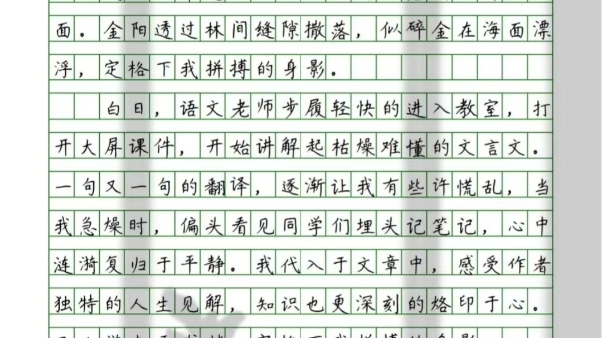 面。金阳透过林间缝隙撒落，似碎金在海面漂
浮，定格下我拼搏的身影。
白日，语文老师步履轻快的进入教室，打
开大屏课件，开始讲解起枯燥难懂的文言文。
一句又一句的翻译，逐渐让我有些许慌乱，当
我急燥时，偏头看见同学们埋头记笔记，心中
涟漪复归于平静。我代入于文章中，感受作者
独特的人生见解，知识也更深刻的烙印于心。